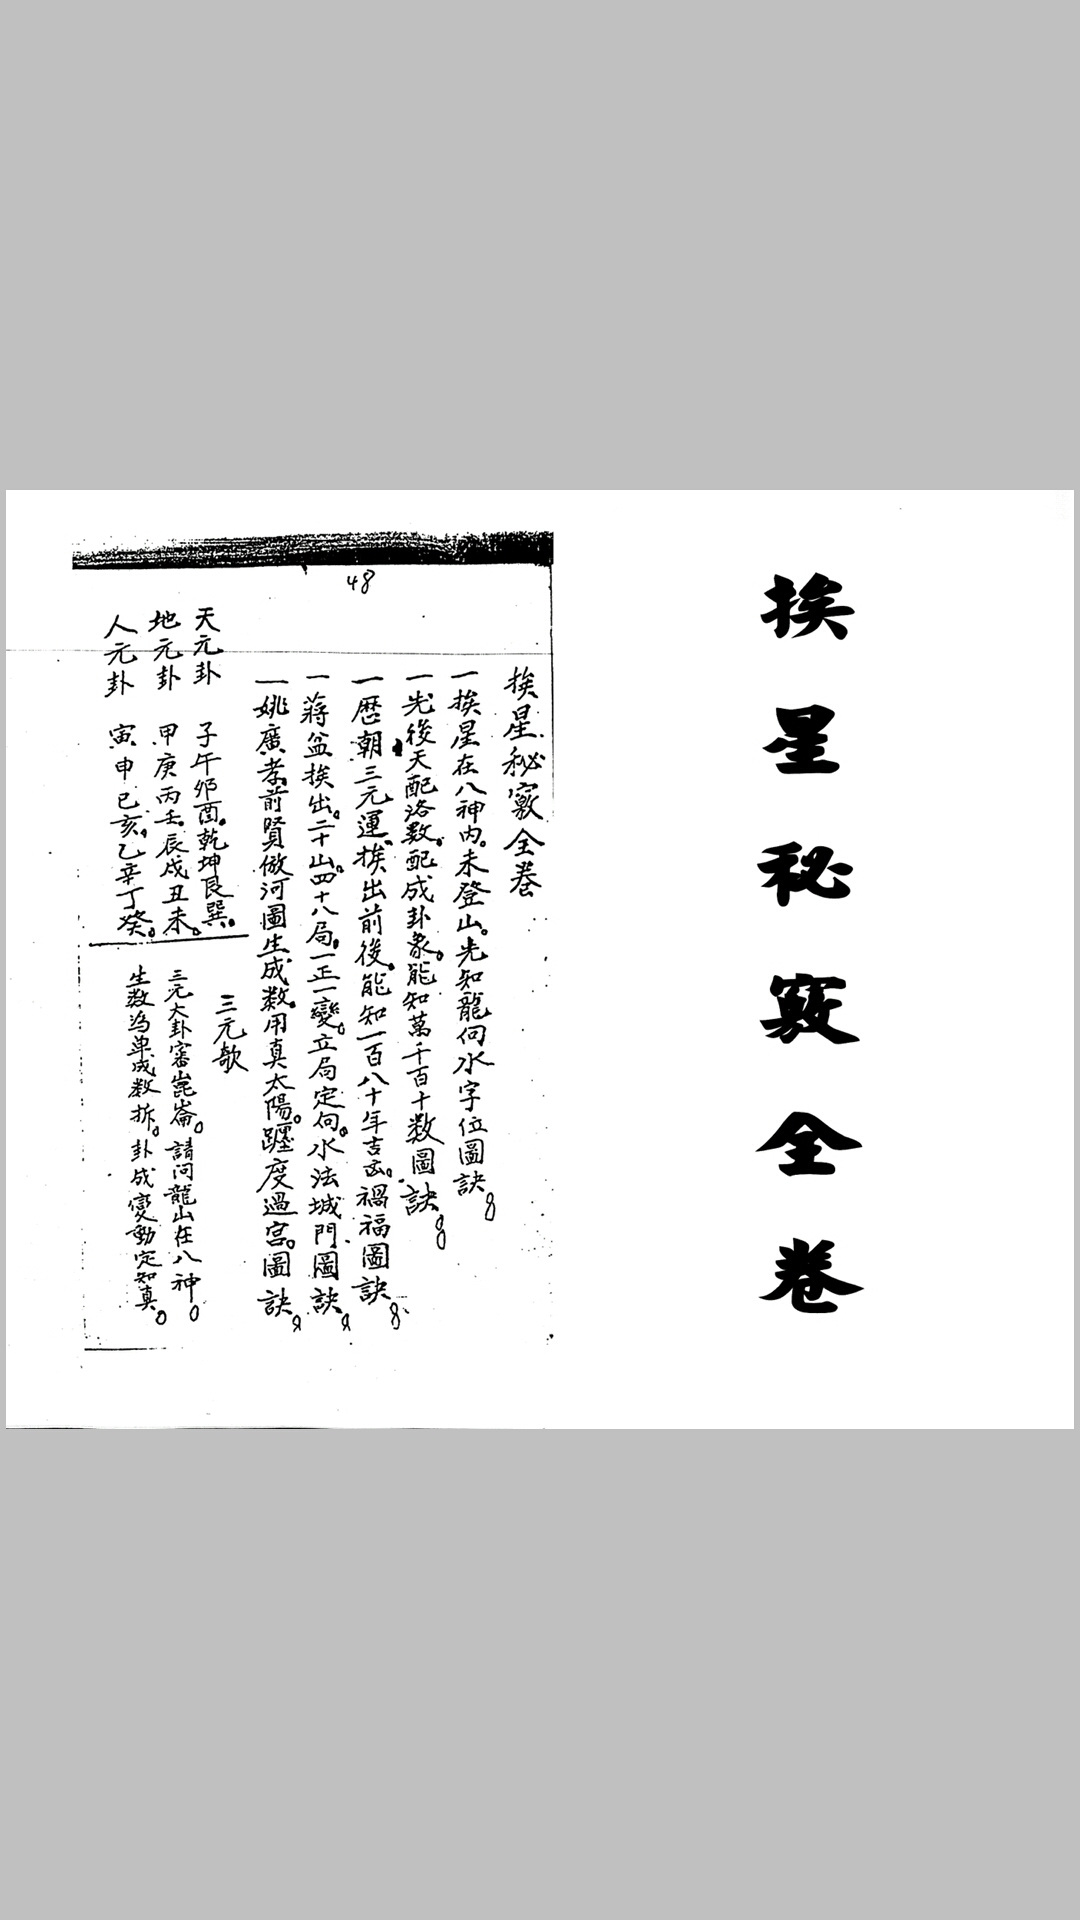 挨星秘竅全卷
48
挨星秘竅全卷
一挨星在八神內。未登山。先知龍何水字位圖訣。
一先後天配洛數。配成卦象。能知萬千百十數圖訣。
一歷朝三元運。挨出前後。能知一百八十年吉凶。禍福圖訣。
一蔣盆挨出。二十山。四十八局。一正一變。立局定向。水法城門圖訣。
一姚廣孝。前賢倣河圖生成數。用真太陽。躔度過宮。圖訣。
天元卦 子午卯酉。乾坤艮巽。
地元卦 甲庚丙壬。辰戌丑未。
人元卦 寅申巳亥。乙辛丁癸。
三元歌
三元大卦審崑崙。請问龍山在八神。
生數為單成數拆。卦成變動定知真。